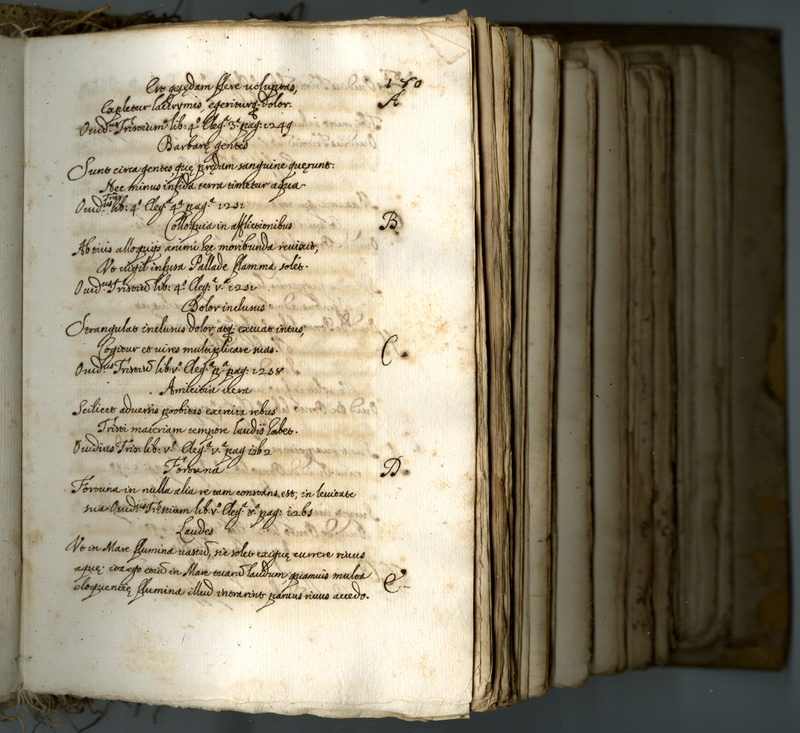 Est quędam flere voluptas,
150
Expletur lacrymis, egeriturq; dolor.
A
Ouid.us Tristium lib: 4.o Eleg.a 3.a pag: 1249
Barbarę gentes
Sunt circa gentes quę prędam sanguine quęrunt:
Nec minus infida terra timetur aqua.
Ouid.us Trist: lib: 4.o Eleg.a 4.a pag.a 1251
Colloquia in afflictionibus
B
At tuis alloquijs animi hęc moribunda reuixit,
Vt vigil infusa Pallade flamma solet.
Ouid.us Tristiũ lib: 4.o Eleg.a v.a 1251
Dolor inclusus
Strangulat inclusus dolor, atq; exuat intus,
Cogitur et vires multiplicare suas.
C
Ouid.us Tristiũ lib: v.o Eleg.a p.a pag: 1258
Amicitia vera
Scilicet aduersis probitas exercita rebus
Tristi materiam tempore laudis habet.
Ouidius Trist: lib: v.o Eleg.a v.a pag 1262
Fortuna
D
Fortuna in nulla alia re tam constans est, in leuitate
sua Ouid.us Tristium lib v.o Eleg.a pag: 1265
Laudes
Vt in Mare flumina vastũ, sic solet exiguę currere riuus
aquę: ita ego etiã in Mare tuarũ laudum quamuis multa
e
eloquentię flumina illud intrarint paruus riuus accedo.